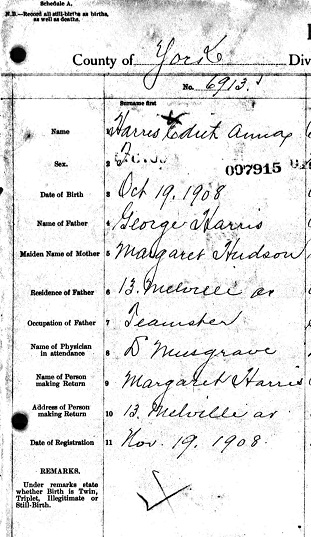 Schedule A.
N.B.—Record all still-births as births,
as well as deaths.
County of York Div
No. 6913.
Surname first
Name 1 Harris Edith Anna
Sex. 2 F 097915
Date of Birth 3 Oct 19, 1908
Name of Father 4 George Harris
Maiden Name of Mother 5 Margaret Hudson
Residence of Father 6 13. Melville av
Occupation of Father 7 Teamster
Name of Physician
in attendance 8 D Musgrave
Name of Person
making Return 9 Margaret Harris
Address of Person
making Return 10 13. Melville av
Date of Registration 11 Nov. 19, 1908.
REMARKS.
Under remarks state
whether Birth is Twin,
Triplet, Illegitimate or
Still-Birth.